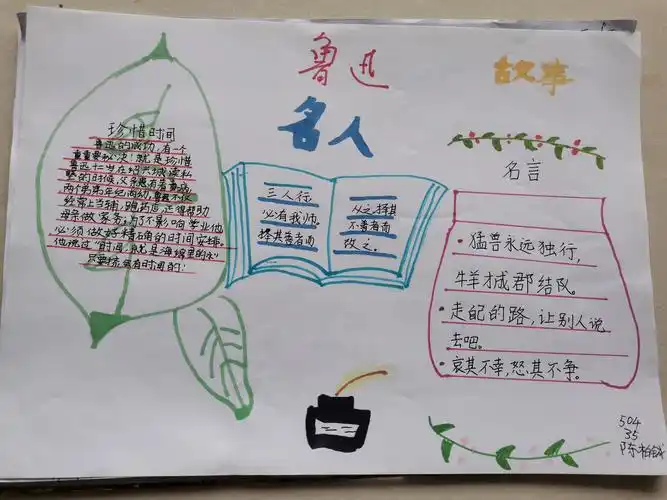 鲁迅
故事
名人
珍惜时间
鲁迅的成功,有一个
重要秘决!就是珍惜
鲁迅十二岁在绍兴城读私
塾的时候,父亲患有着重病,
两个弟弟年纪尚幼,鲁迅不仅
经常上当铺,跑药店,还得帮助
母亲做家务;为了不影响学业他
必须做好精确的时间安排。
他说过"时间,就是海绵里的水"
只要挤,总有时间的!
三人行,
必有我师,
择其善者而
从之择其
不善者而
改之。
名言
·猛兽永远独行,
牛羊才成郡结队。
·走自己的路,让别人说
去吧。
·哀其不幸,怒其不争。
504
35
陈柏